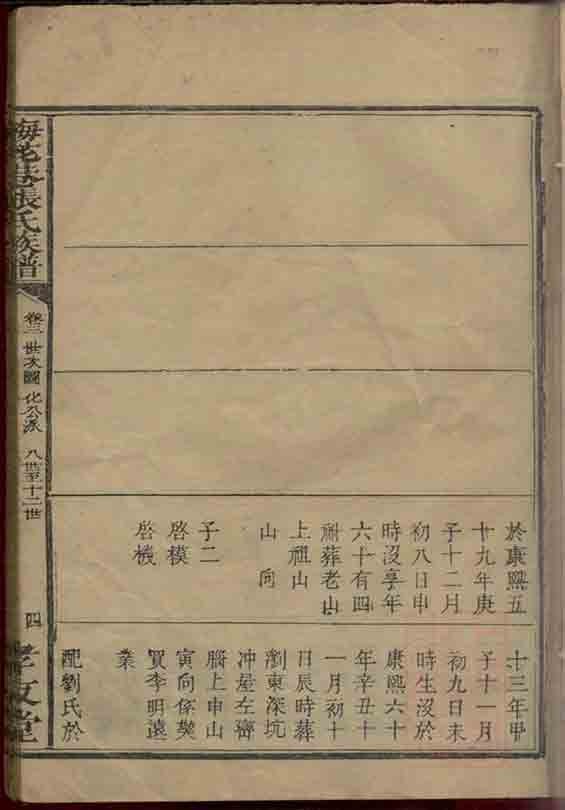 於康熙五
廿九年庚
子十二月
初八日申
時沒享年
六十有四
祔葬老山
上祖山
山向
子二
啓模
啓機
十三年甲
子十一月
初九日未
時生沒於
康熙六十
年辛丑十
一月初十
日辰時葬
瀏東深坑
冲屋左齊
腦上申山
寅向係契
買李明遠
業
配劉氏於
梅花巷張氏族譜
卷三 世次圖 化公派 八世至十二世
四
孝友堂